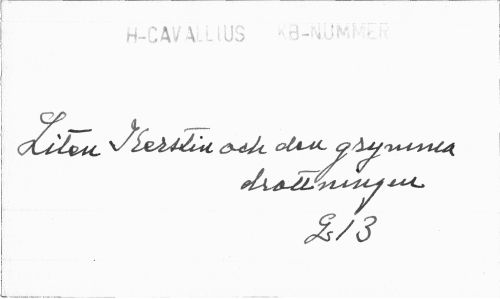 H-CAVALLIUS KB-NUMMER
Liten Kerstin och den grymma
drottningen
Gs 13